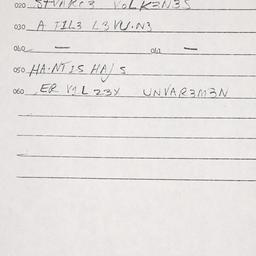 020 STVARC3 VOLK2N3S
030 A TIL3 L3VU.N3
040 — 041 —
050 HA·NTIS HAJS
060 ER V1L23X UNVAR3M3N